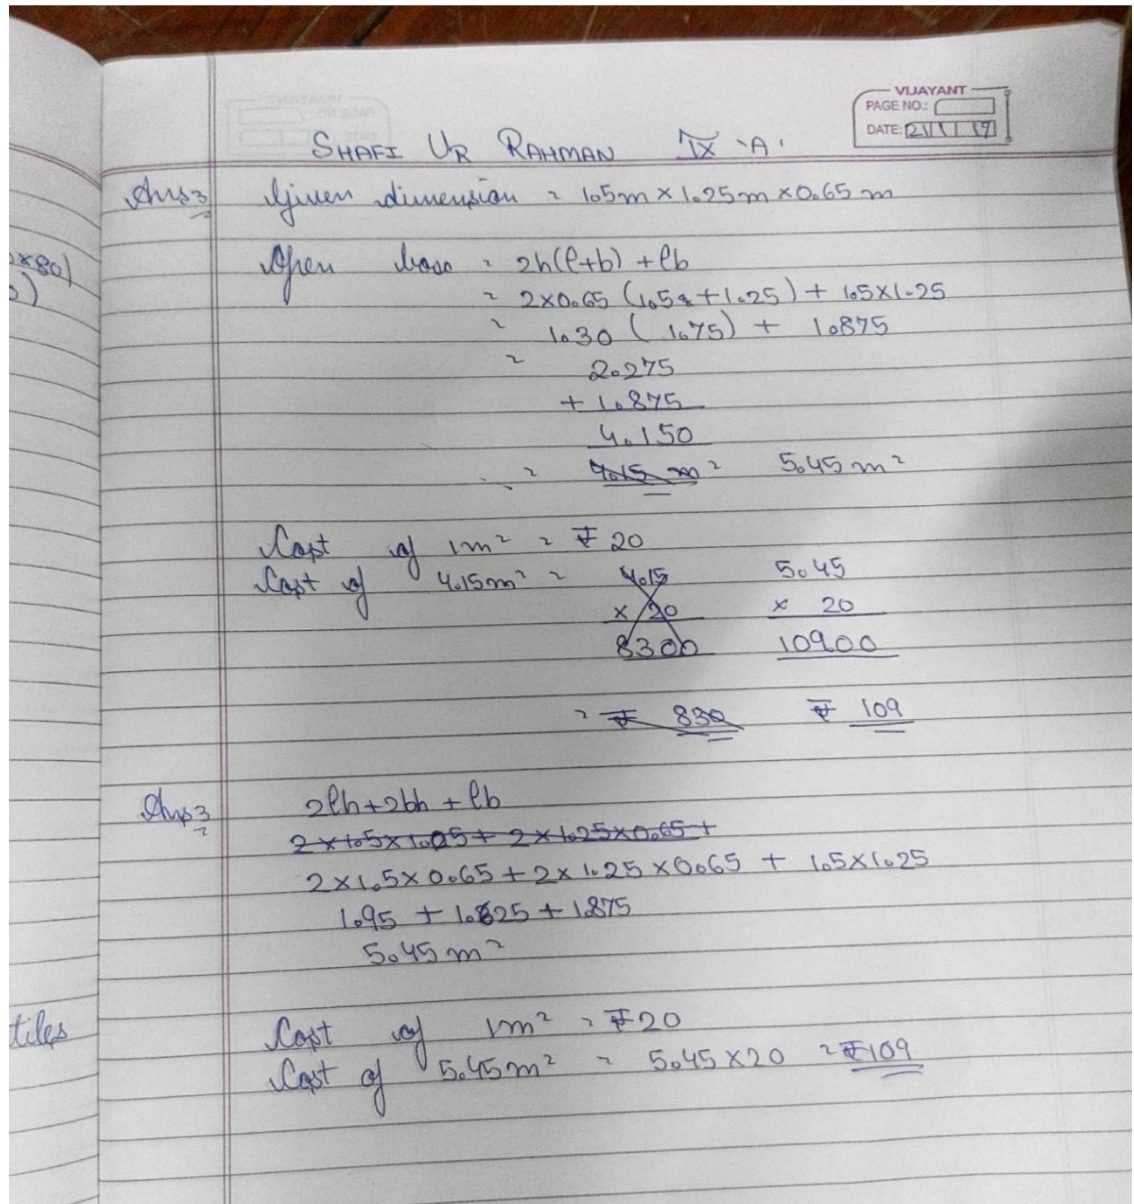 VIJAYANT
PAGE NO.:
DATE: 21 1 19
SHAFI UR RAHMAN IX 'A'
Ans3 Given dimension = 1.5m × 1.25m × 0.65m
×80)
Open base = 2h(l+b) + lb
= 2×0.65 (1.5 + 1.25) + 1.5×1.25
= 1.30 (1.75) + 1.875
= 2.275
+ 1.875
4.150
= 4.15 m² 5.45 m²
Cost of 1m² = ₹ 20
Cost of 4.15m² = 4.15 5.45
× 20 × 20
8300 10900
= ₹ 830 ₹ 109
Ans3 2lh+2bh+lb
2×1.5×1.25+ 2×1.25×0.65+
2×1.5×0.65+2×1.25×0.65 + 1.5×1.25
1.95 + 1.625 + 1.875
5.45 m²
tiles Cost of 1m² = ₹20
Cost of 5.45m² = 5.45×20 = ₹109